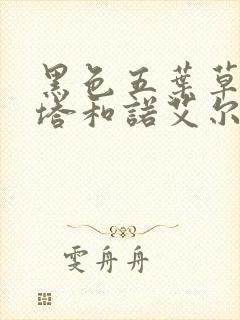 黑色五葉草
塔和諾艾尔
雯舟舟